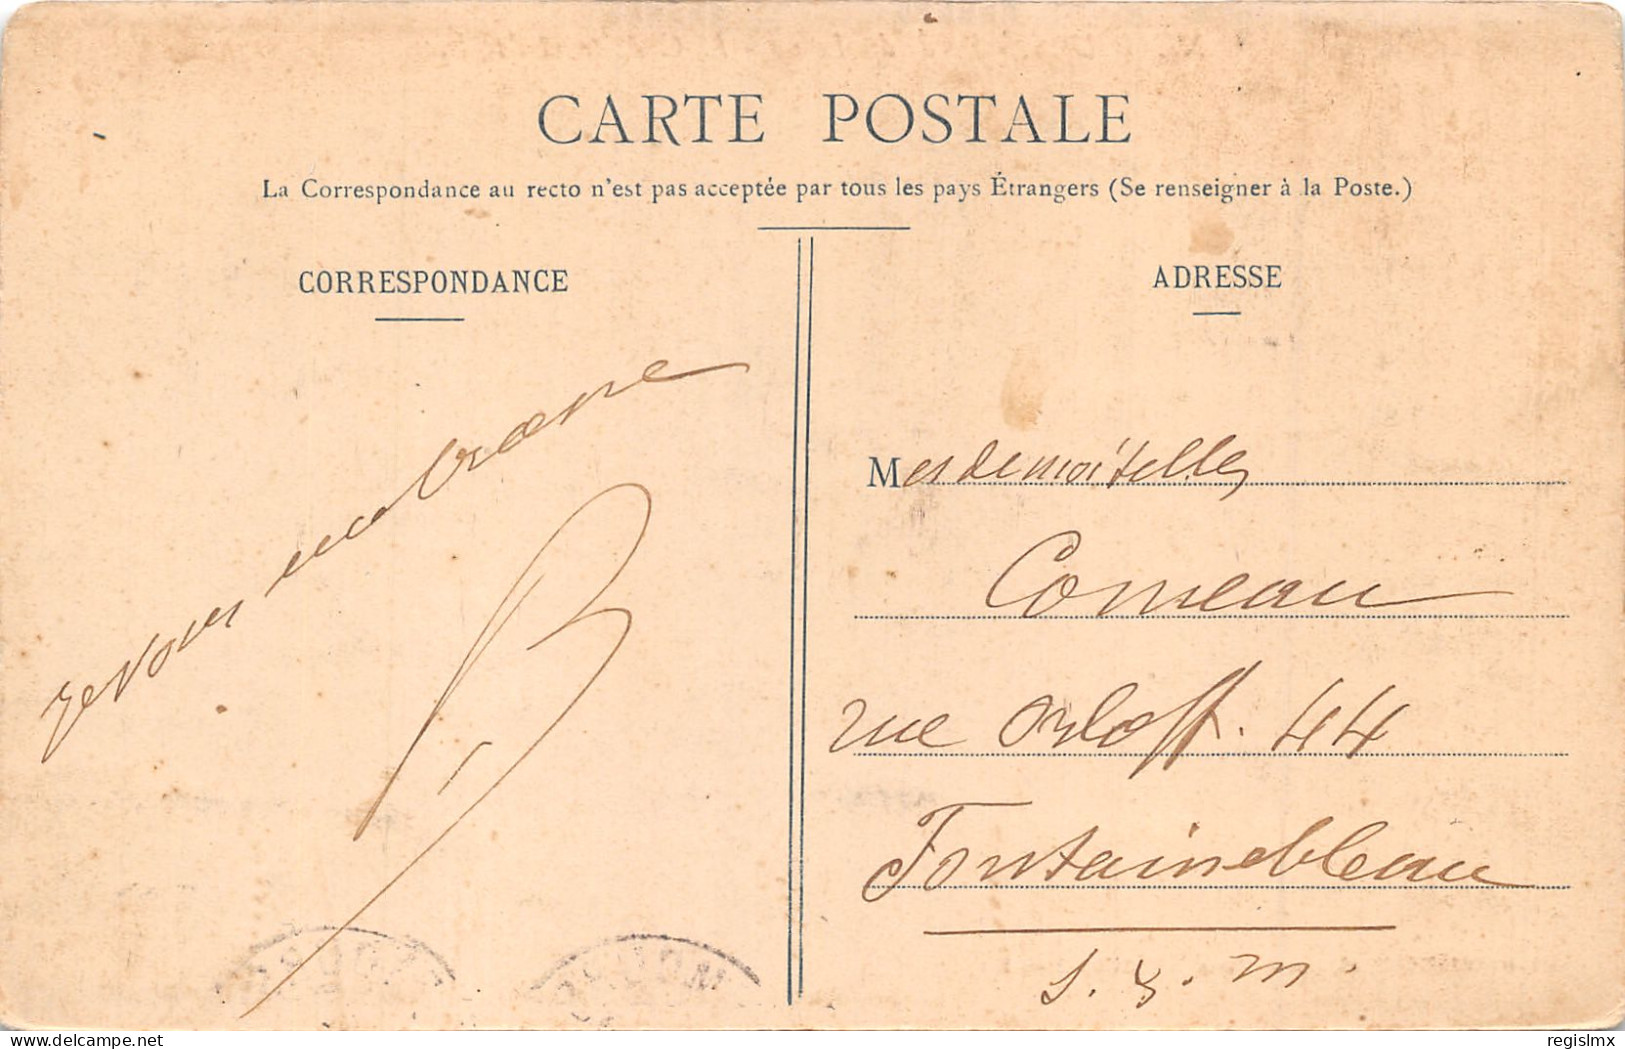 CARTE POSTALE
La Correspondance au recto n'est pas acceptée par tous les pays Étrangers (Se renseigner à la Poste.)
CORRESPONDANCE
Je vous embrasse
B
ADRESSE
Mesdemoiselles
Comeau
rue Orloff. 44
Fontainebleau
S. & M.
delcampe.net
regislmx